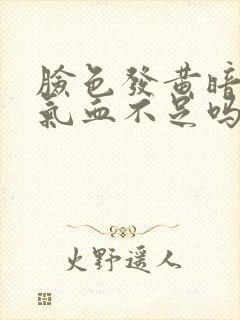 臉色發黃暗
氣血不足嗎
火野遥人